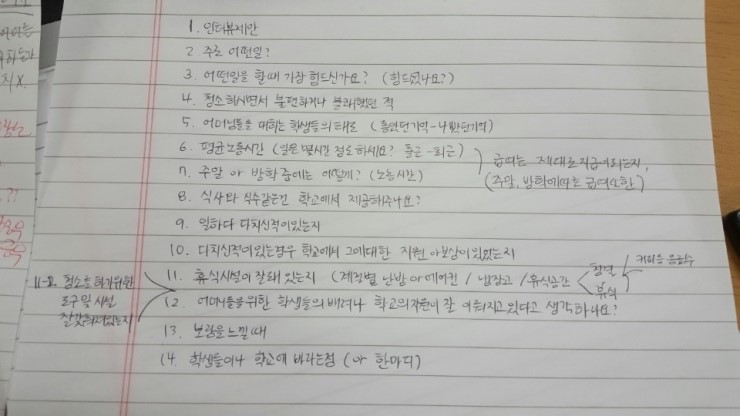 1. 인터뷰제안
2. 주로 어떤일?
3. 어떤일을 할때 가장 힘드신가요? (힘드셨나요?)
4. 청소하시면서 불편하거나 불쾌했던 적
5. 어머님들을 대하는 학생들의 태도 (좋았던기억-나빴던기억)
6. 평균노동시간 (일은 몇시간 정도 하세요? 출근-퇴근)
7. 주말 or 방학중에는 어떻게? (노동시간)
급여는 제대로지급이되는지,
(주말, 방학에따른 급여 또한)
8. 식사와 식수같은건 학교에서 제공해주나요?
9. 일하다 다치신적이있는지
10. 다치신적이있는경우 학교에서 그에대한 지원 or 보상이있었는지
11. 휴식시설이 잘돼 있는지 (계절별 난방 or 에어컨 / 냉장고 / 휴식공간
휴식
커피등 음료수
11-2. 청소를 하기위한
도구및 시설
잘갖춰져있는지
12. 어머님들을위한 학생들의 배려나 학교의지원이 잘 이뤄지고있다고 생각하나요?
13. 보람을느낄때
14. 학생들이나 학교에 바라는점 (or 한마디)